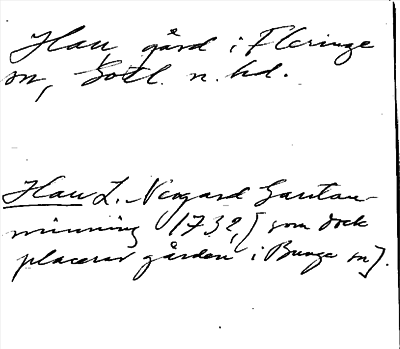 Hau, gård i Fleringe
sn, Gotl. n. hd.
Hau L. Neogard Gautau-
minning 1732, [som dock
placerar gården i Bunge sn].